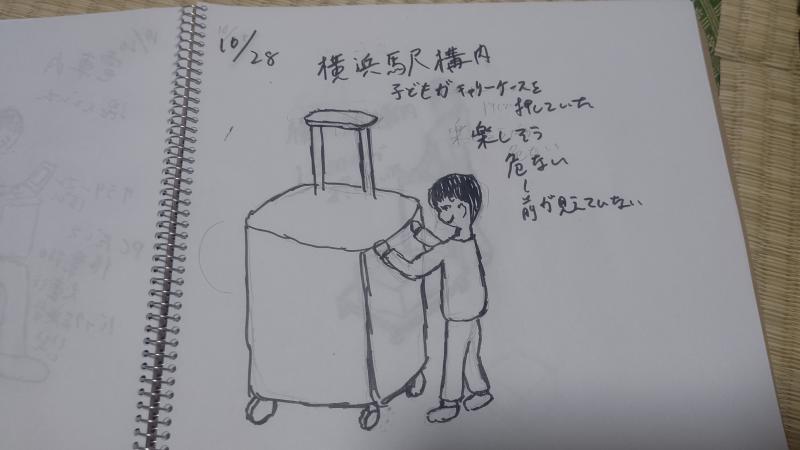 10/28
横浜駅構内
子どもがキャリーケースを
押していた
楽しそう
危ない
前が見えていない